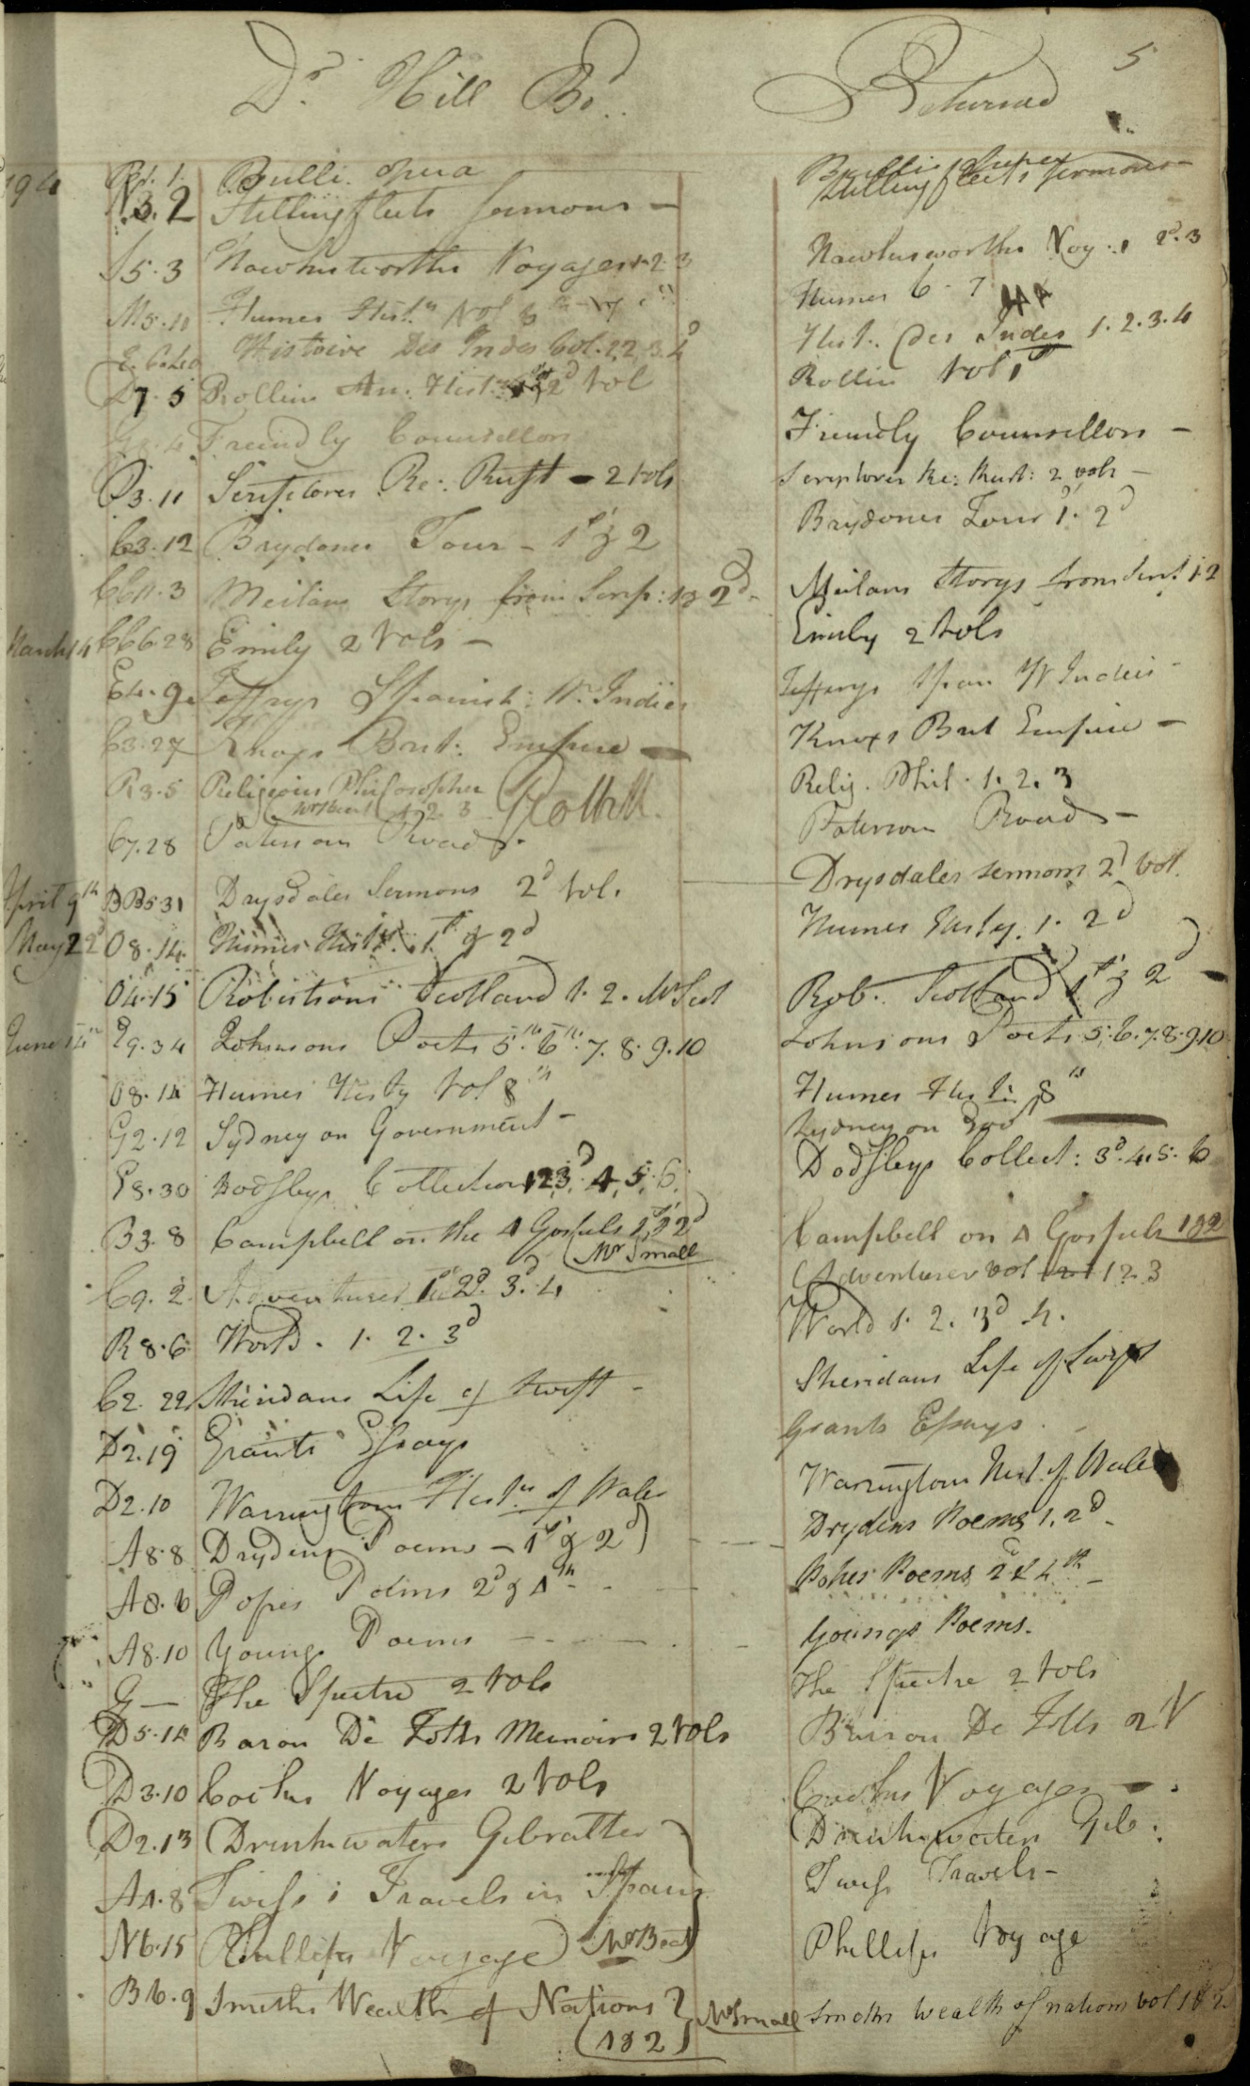 Dr. Hill Bd. Returned 5
Bulli. opera
N3.2 Stillingfleets Sermons — Stillingfleets Sermons
S5.3 Hawkesworths Voyages 1.2.3 Hawkesworths Voy: 1 2d.3
M5.11 Humes Histy Vol 6th 7th Humes 6. 7
E.6.40 Histoire Des Indes Vol. 1.2.3.4 Hist. Des Indes 1.2.3.4
D7.5 Rollins An: Hist: 1st 2d Vol Rollin Vol 1st
Freindly Councellors Friendly Councellors —
P3.11 Scriptores Re: Rust — 2 vols Scriptores Re: Rust: 2 vols —
C3.12 Brydones Tour — 1st & 2 Brydones Tour 1. 2d
CC11.3 Meilans Storys from Scrip: 1 & 2d Meilans Storys from Scrip 1.2
March 14 CC6.28 Emily 2 Vols — Emily 2 Vols
E4.9 Jefferys Spanish: W. Indies Jefferys Span W Indies
C3.27 Knoxs Brit: Empire — Knoxs Brit Empire —
R3.5 Religious Philosopher 1 2 3 Relig. Phil. 1. 2. 3
C7.28 Patersons Roads. Paterson Roads —
April 9th BB5.31 Drysdales Sermons 2d Vol. Drysdales sermons 2d Vol.
May 22d O8.14 Humes Histy. 1st & 2d Humes Histy. 1. 2d
O4.15 Robertsons Scotland 1. 2. Rob. Scotland 1st & 2d —
June 14th P9.34 Johnsons Poets 5th. 6th. 7. 8. 9. 10 Johnsons Poets 5.6.7.8.9.10
O8.14 Humes Histy Vol 8th Humes Hist: 8th
G2.12 Sydney on Government — Sydney on Gov
P8.30 Dodsleys Collection 1 2 3d. 4, 5. 6. Dodsleys Collect: 3d. 4. 5. 6
B3.8 Campbell on the 4 Gospels 1st & 2d Campbell on 4 Gospels 1 & 2
Mr Small
C9.2 Adventurer 1st 2d. 3d. 4 Adventurer vol 1 2 3
R8.6 World. 1. 2. 3d World 1. 2. 3d 4.
C2.22 Sheridans Life of Swift — Sheridans Life of Swift
D2.19 Grants Essays Grants Essays.
D2.10 Warringtons Histy of Wales Warringtons Hist. of Wales
A8.8 Drydens Poems — 1st & 2d Drydens Poems 1. 2d —
A8.6 Popes Poems 2d & 4th Popes Poems 2d & 4th —
A8.10 Youngs Poems — Youngs Poems.
G — The Spectre 2 Vols The Spectre 2 Vols
D5.14 Baron De Totts Memoirs 2 Vols Baron De Totts 2 V
D3.10 Cooks Voyages 2 Vols Cooks Voyages —
D2.13 Drinkwaters Gibralter Drinkwaters Gib:
A4.8 Twiss's Travels in Spain Twiss Travels —
N6.15 Phillips Voyage Phillips Voyage
B6.9 Smiths Wealth of Nations Mr Small Smiths Wealth of nations vol 1 & 2.
(1 & 2)